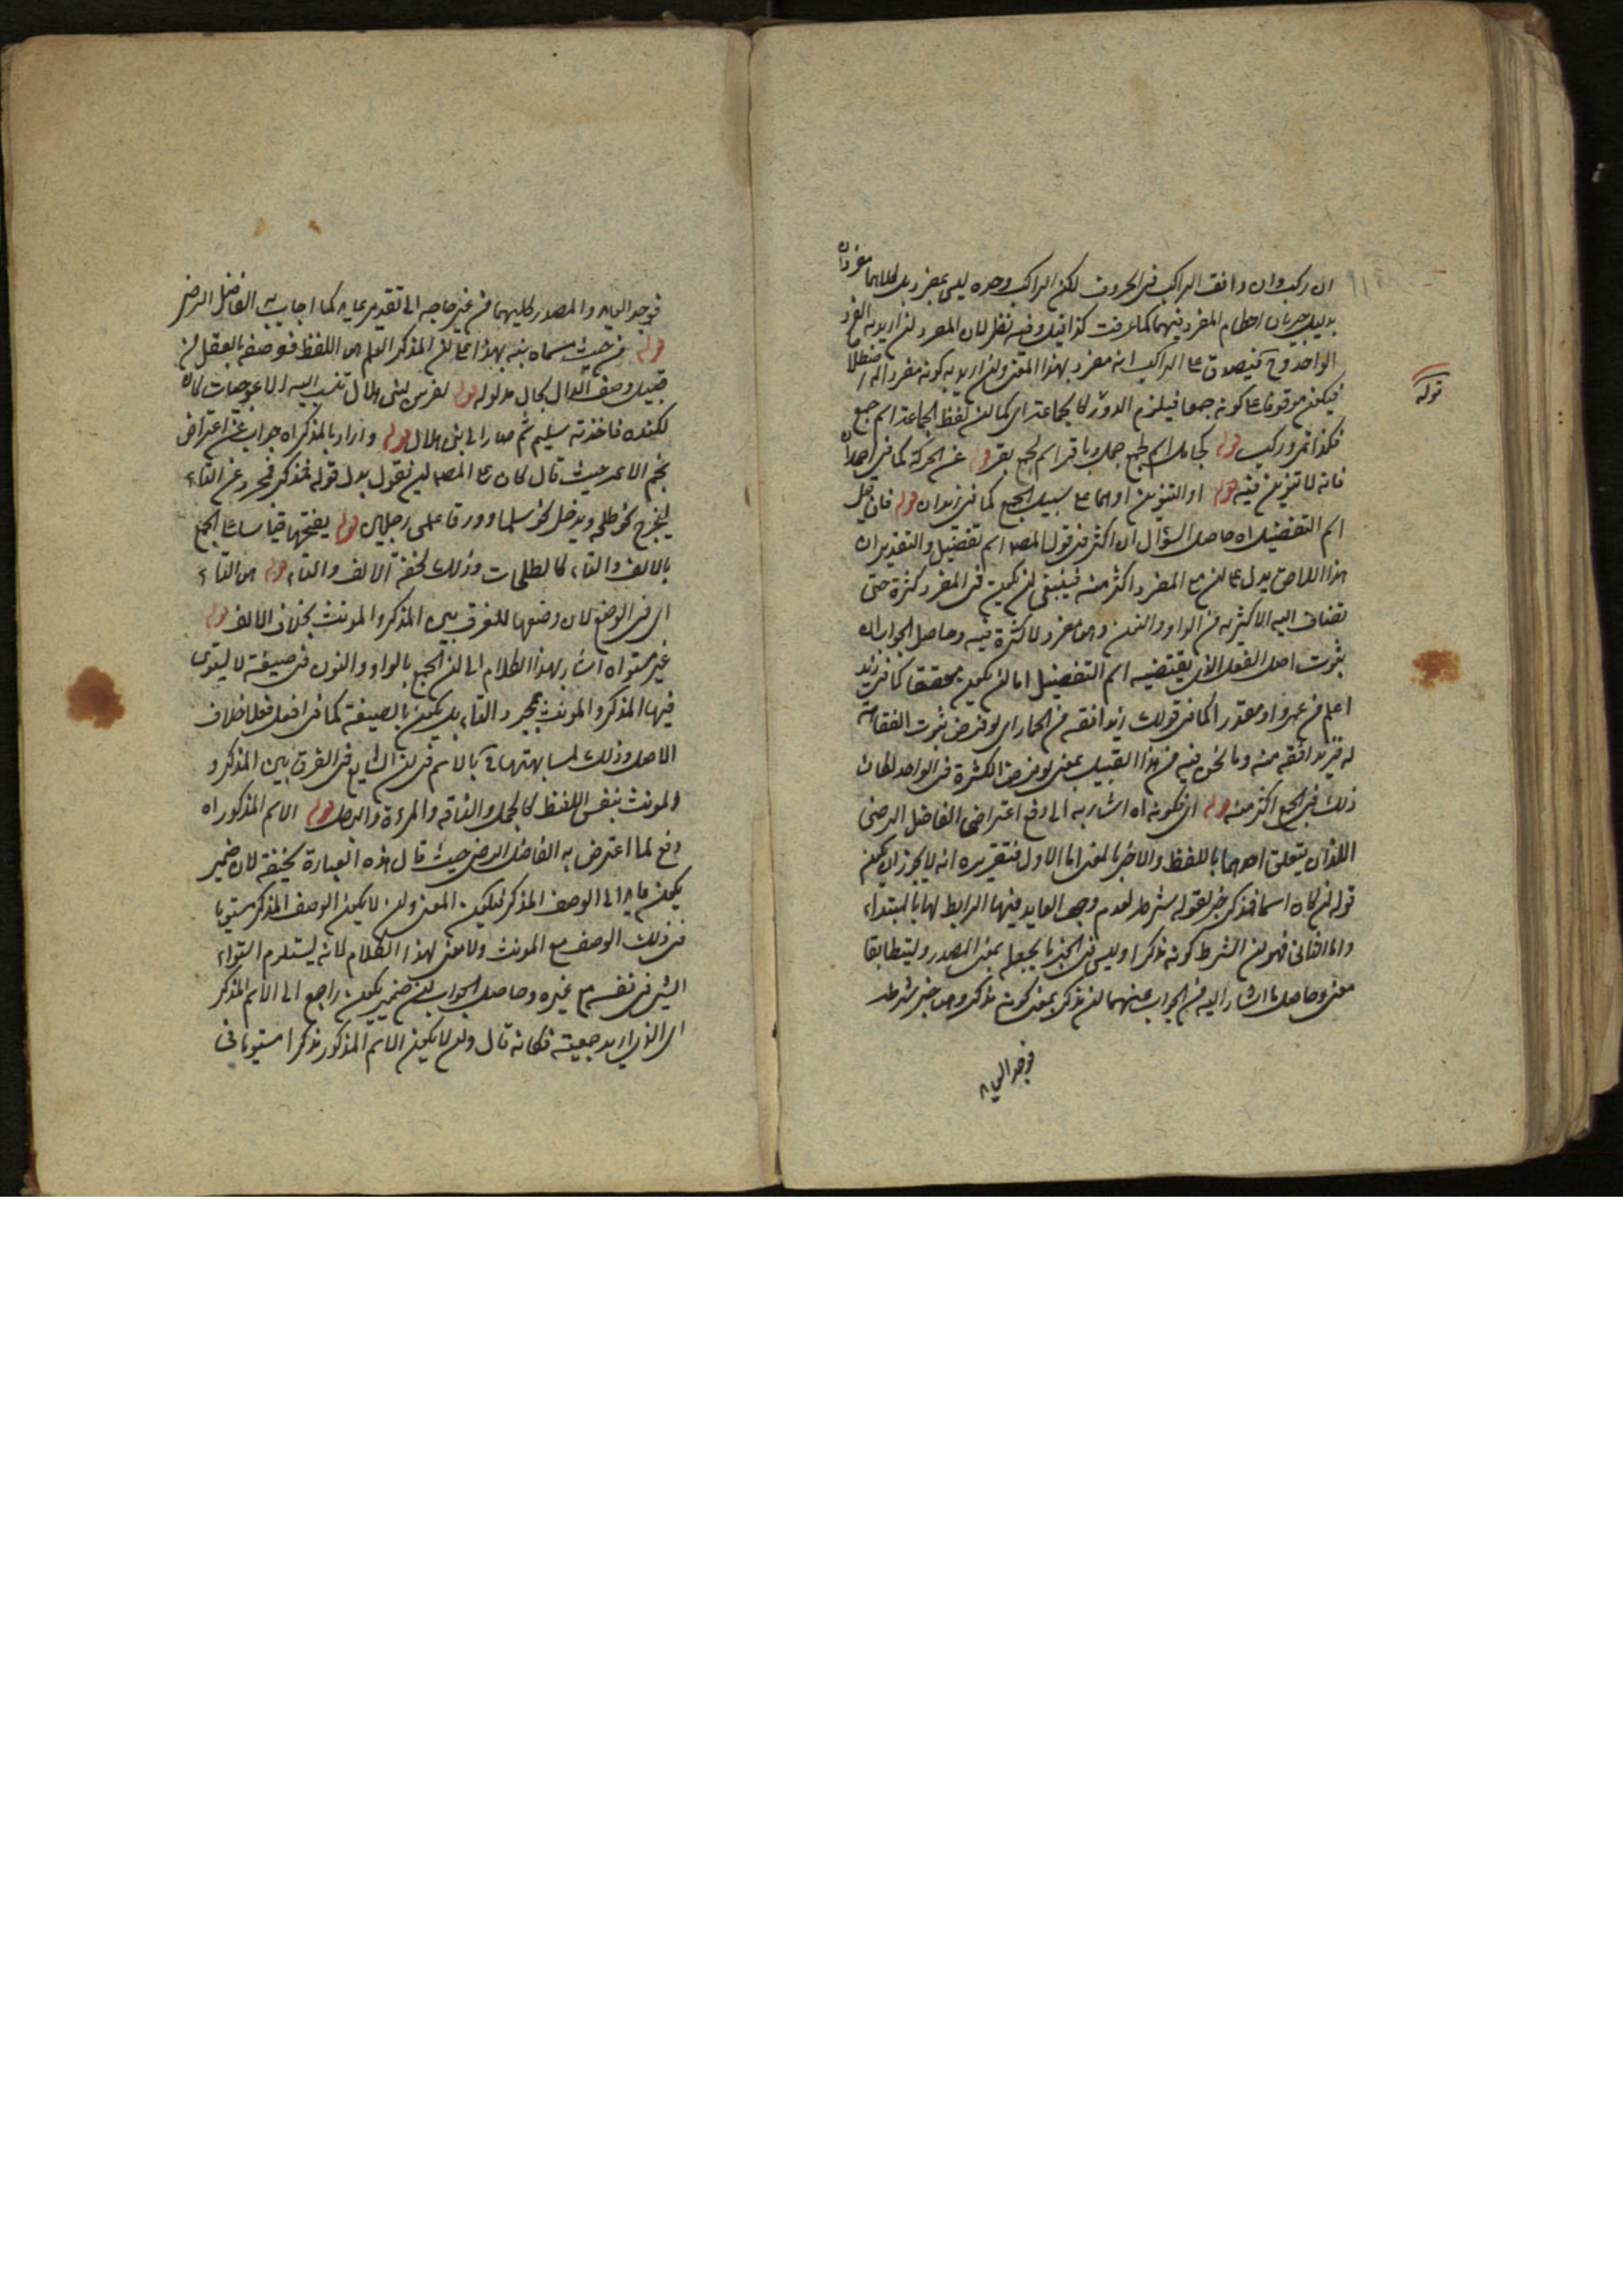 ان ركب وان وافق الراكب فى الحروف لكن الراكب وحده ليس بمفرد بل كلاهما مفردان
بدليل جريان احكام المفرد فيهما كما عرفت كذا قيل وفيه نظر لان المفرد ان اريد به الفرد
الواحد وح فيصدق على الراكب انه مفرد بهذا المعنى وان اريد به كونه مفردا
فيكون موقوفا على كونه جمعا فيلزم الدور كالجماعة اى كما ان لفظ الجماعة اسم جمع
فكذا تمر وركب قوله كجامل اسم لجمع جمل وباقر اسم لجمع بقر قوله عن الحركة كما فى
فانه لا تنوين فيه قوله او التنوين اوهما على سبيل الجمع كما فى زيدان قوله فان قيل
اسم التفضيل اه حاصل السؤال ان اكثر فى قول المصـ اسم تفضيل والتقدير ان
هذا اللاحق يدل على ان مع المفرد اكثر منه فينبغى ان يكون فى المفرد كثرة حتى
تضاف اليه الاكثرية من الواو والنون وهو مفرد لا كثرة فيه وحاصل الجواب ان
ثبوت اصل الفعل الذى يقتضيه اسم التفضيل اما ان يكون محققا كما فى زيد
اعلم من عمرو او مقدرا كما فى قولك زيد افقه من الحمار اى لو فرض ثبوت الفقاهة
له فزيد افقه منه وما نحن فيه من هذا القبيل بمعنى لو فرض الكثرة فى الواحد لكان
ذلك فى الجمع اكثر منه قوله اى فكونه اه اشار به الى دفع اعتراضى الفاضل الرضى
اللذان يتعلق احدهما باللفظ والاخر بالمعنى اما الاول فتقريره انه لا يجوز ان يكون
قوله ان كان اسما فمذكر خبر لقوله شرطه لعدم وجود العايد فيها الرابط لها بالمبتداء
واما الثانى فهو ان الشرط كونه مذكرا وليس فى الخبر ما يجعله بمعنى المصدر وليتطابقا
معنى وحاصل ما اشار اليه من الجواب عنهما ان مذكر بمعنى كونه مذكر وهو خبر شرطه
فوجد
قوله
فوجد والمصدر كليهما من غير حاجة الى تقدير كما اجاب به الفاضل الرضى
قوله من حيث مسماه نبه بهذا على ان المذكر العلم هو اللفظ فوصفه بالعقل من
قبيل وصف الدال بحال مدلوله قوله لفرس لبنى هلال تنسب اليه الاعوجيات كان
لكندة فاخذته سليم ثم صار الى بنى هلال قوله واراد بالمذكر اه جواب عن اعتراض
نجم الائمة حيث قال كان على المصـ ان يقول بدل قوله فمذكر فمجرد عن التاء
ليخرج نحو طلحة ويدخل نحو سلما وورقا علمى رجلين قوله بفتحها قياسا على الجمع
بالالف والتاء كالطلحات وذلك لخفة الالف والتاء قوله هو التاء
اى فى الوضع لان وضعها للفرق بين المذكر والمونث بخلاف الالف قوله
غير مستو اه اشار بهذا الكلام الى ان الجمع بالواو والنون فى صيغة لا يستوى
فيها المذكر والمونث بمجرد التاء بل يكون بالصيغة كما فى افعل فعلا خلاف
الاصل وذلك لمشابهتها بالاسم فى ان الشايع فى الفرق بين المذكر و
المونث بنفس اللفظ كالجمل والناقة والمرءة والرجل قوله الاسم المذكور اه
دفع لما اعترض به الفاضل الرضى حيث قال هذه العبارة سخيفة لان ضمير
يكون عايد الى الوصف المذكر فيكون المعنى وان لا يكون الوصف المذكر مستويا
فى ذلك الوصف مع المونث ولا معنى لهذا الكلام لانه يستلزم استواء
الشئ فى نفسه مع غيره وحاصل الجواب ان ضمير يكون راجع الى الاسم المذكر
اى الذى اريد جمعيته فكانه قال وان لا يكون الاسم المذكور مذكرا مستويا فى